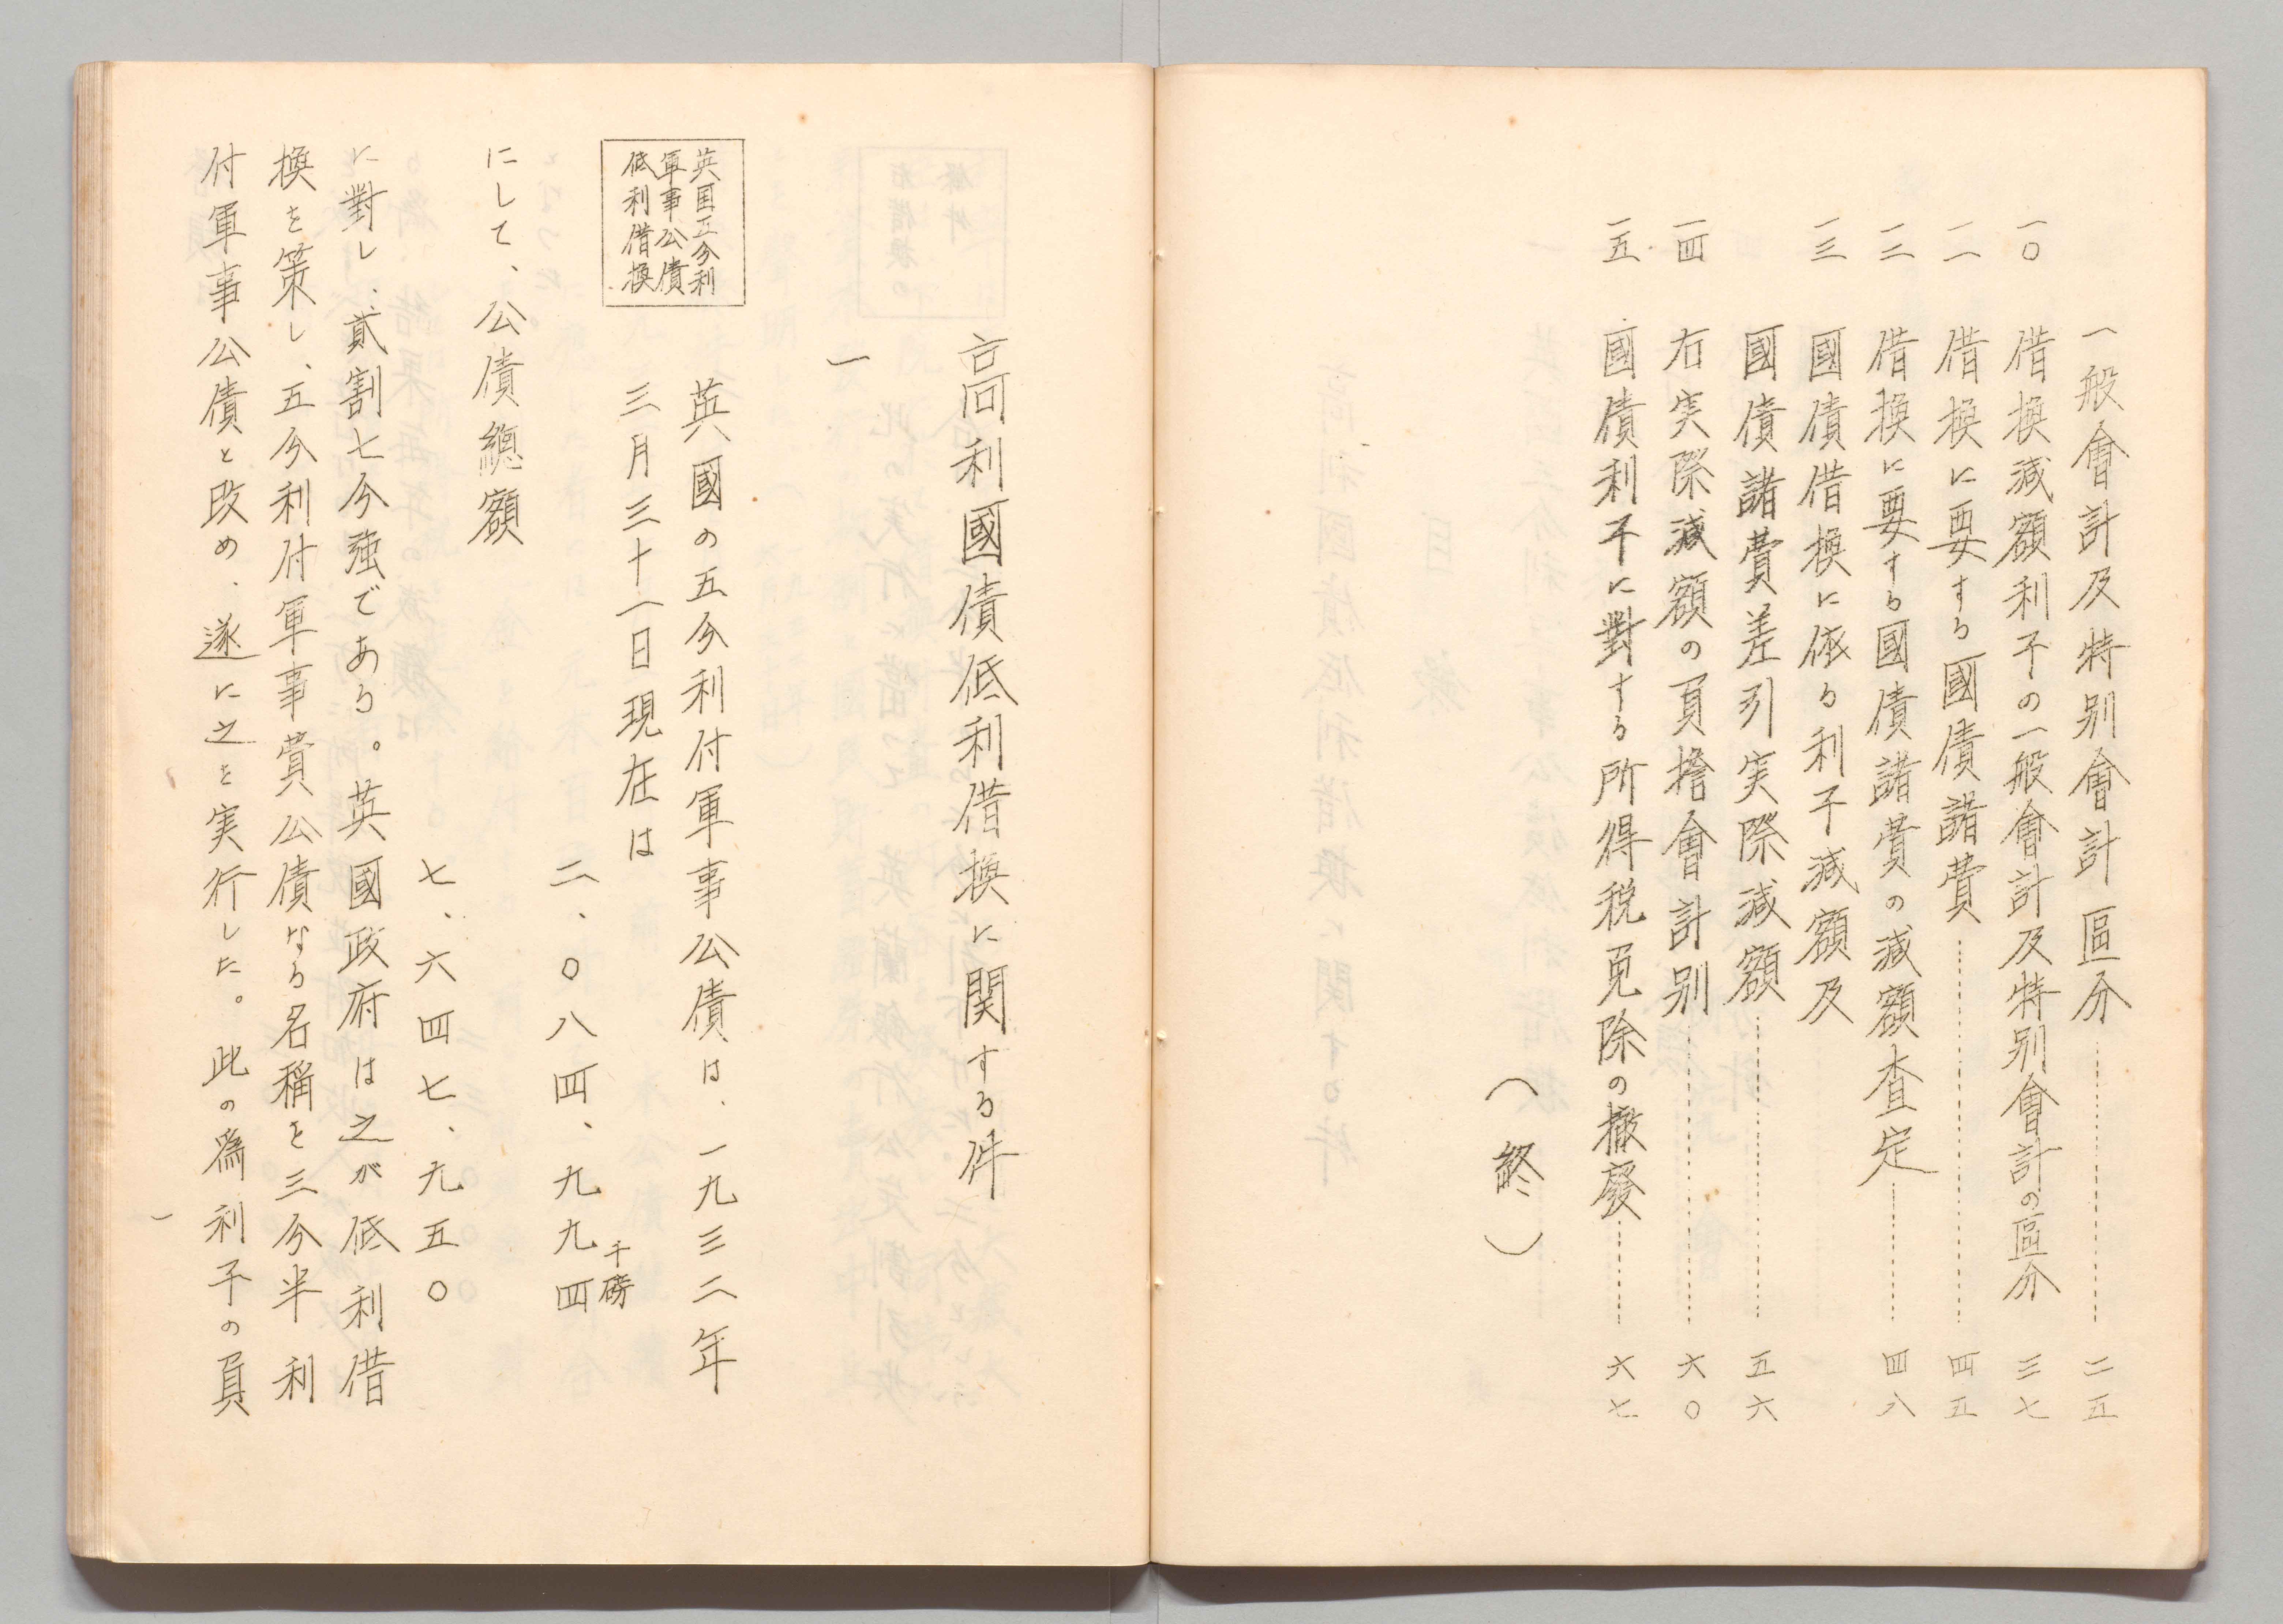 一般會計及特別會計區分……二五
一〇 借換減額利子の一般會計及特別會計の區分 三七
一一 借換に要する國債諸費……四五
一二 借換に要する國債諸費の減額査定……四八
一三 國債借換に依る利子減額及
國債諸費差引実際減額……五六
一四 右実際減額の負擔會計別……六〇
一五 國債利子に對する所得税免除の撤廢……六七
（終）
高利國債低利借換に関する件
一
英国五分利
軍事公債
低利借換
英國の五分利付軍事公債は、一九三二年
三月三十一日現在は
千磅
二、〇八四、九九四
にして、公債總額
七、六四七、九五〇
に對し、貳割七分強である。英國政府は之が低利借
換を策し、五分利付軍事賞公債なる名稱を三分半利
付軍事公債と改め、遂に之を実行した。此の爲利子の負
一